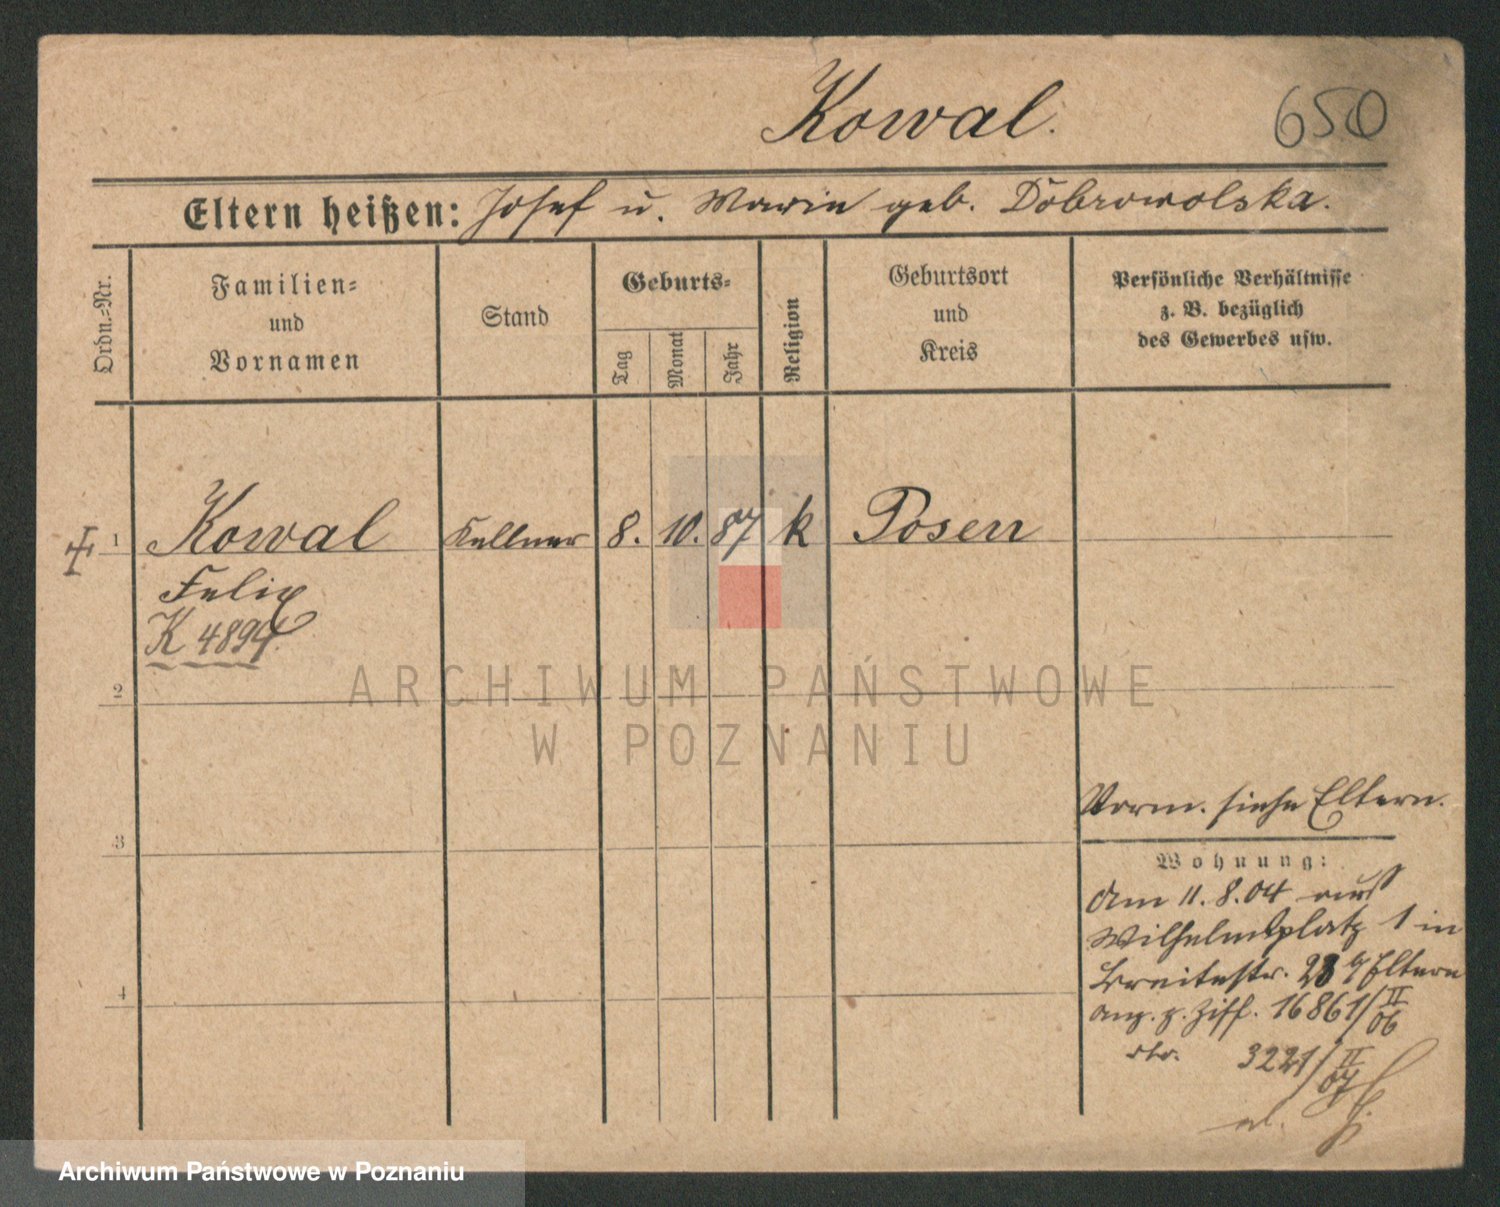 Kowal.
650
Eltern heißen: Josef u. Marie geb. Dobrowolska.
Ordn.-Nr.
Familien-
und
Vornamen
Stand
Geburts-
Tag
Monat
Jahr
Religion
Geburtsort
und
Kreis
Persönliche Verhältnisse
z. B. bezüglich
des Gewerbes usw.
1 Kowal Kellner 8. 10. 87 k Posen
Felix
K 4894.
2
3
4
Vorm. siehe Eltern.
Wohnung:
Am 11. 8. 04 aus
Wilhelmsplatz 1 in
Breitestr. 23 Eltern
Anz. z. Ziff. 16861/II 06
dto. 3221/II 07
ARCHIWUM PAŃSTWOWE
W POZNANIU
Archiwum Państwowe w Poznaniu